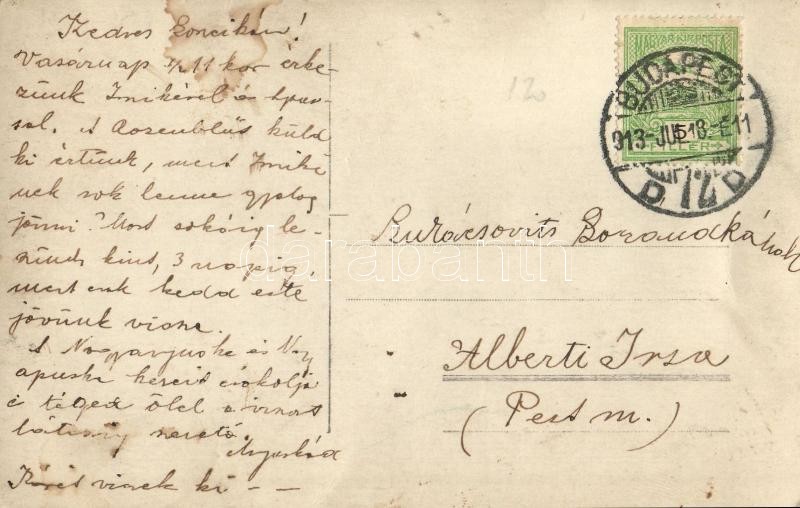 Kedves Boriskám!
Vasárnap ½ 11 kor érke-
zünk Imikével és Apus-
sal. A Rosenblüt küld
ki értünk, mert Imiké
nek sok lenne gyalog
jönni? Most sokáig le-
szünk kint, 3 napig,
mert csak kedd este
jövünk vissza.
A Nagyanyuska és Nagy
apuska kezeit csókolja
és téged ölel a viszont
látásig szerető
Anyuskád
viszek ki — —
120
MAGYAR KIR. POSTA
5
FILLÉR
BUDAPEST
913-JUL 18
Boriskának
Alberti Irsa
(Pest m.)
darabanth